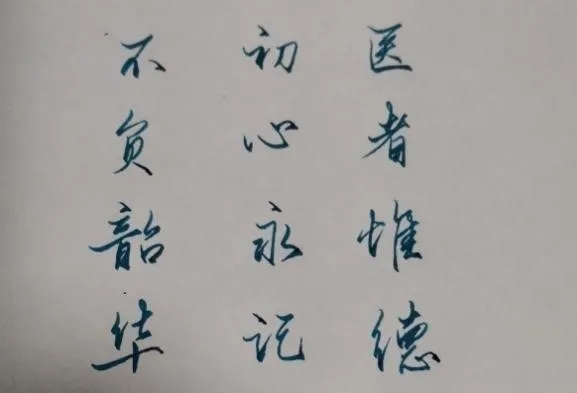 医者惟德
初心永记
不负韶华